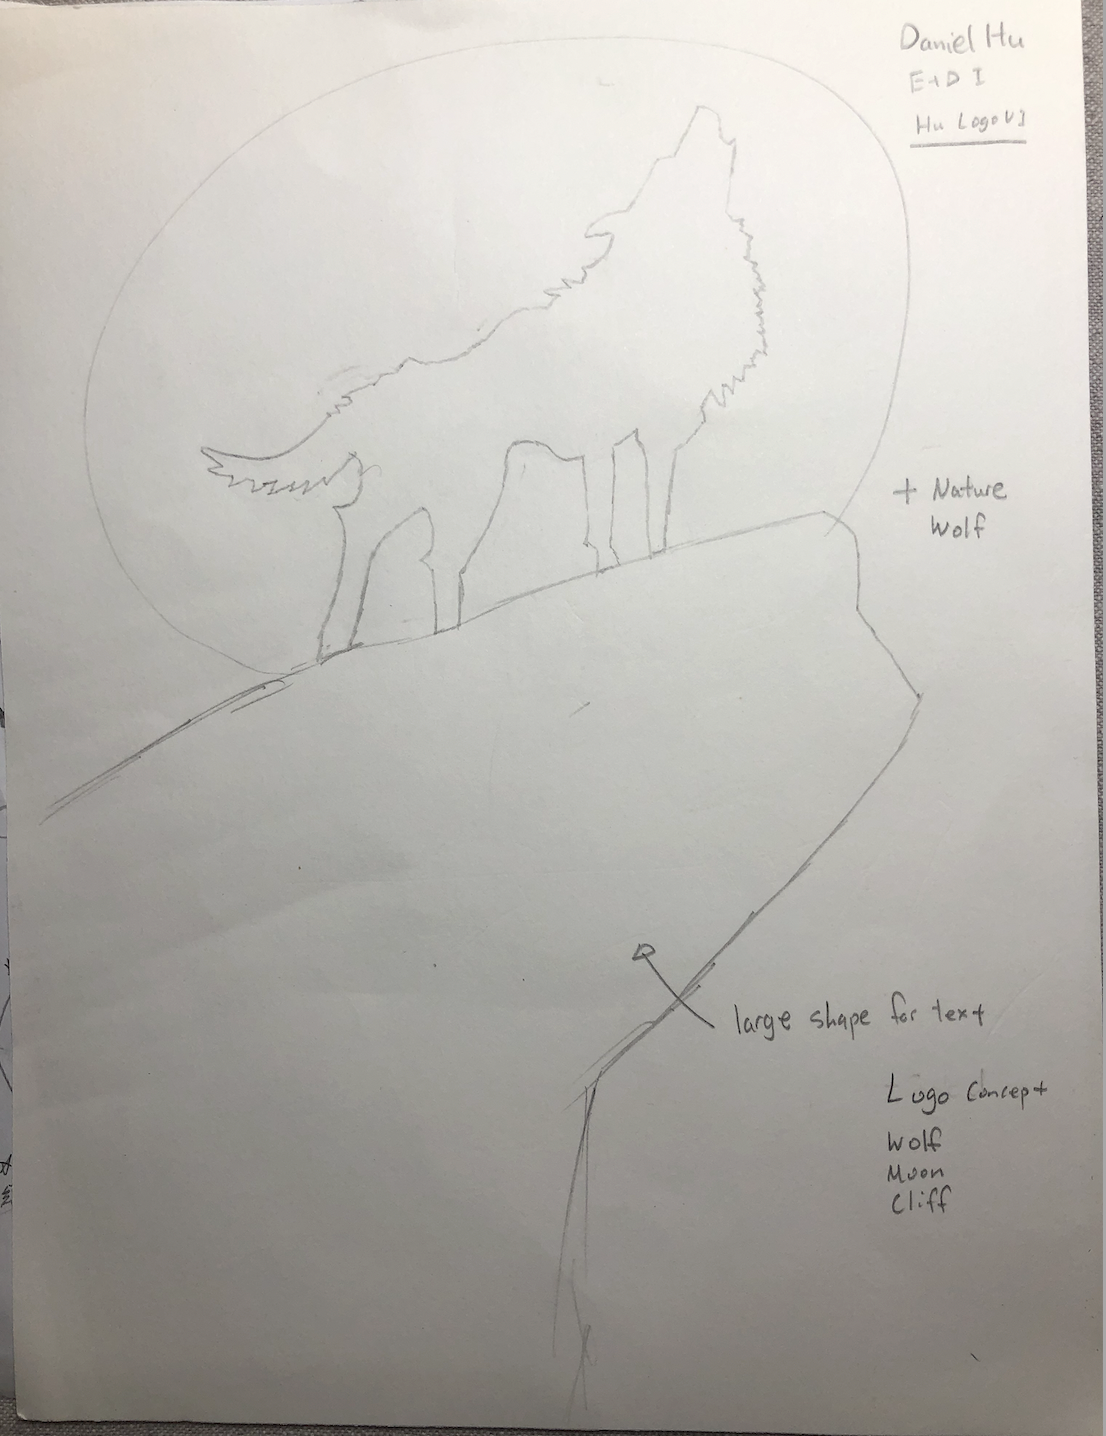 Daniel Hu
E+D I
Hu Logo V1
+ Nature
Wolf
large shape for text
Logo Concept
Wolf
Moon
Cliff